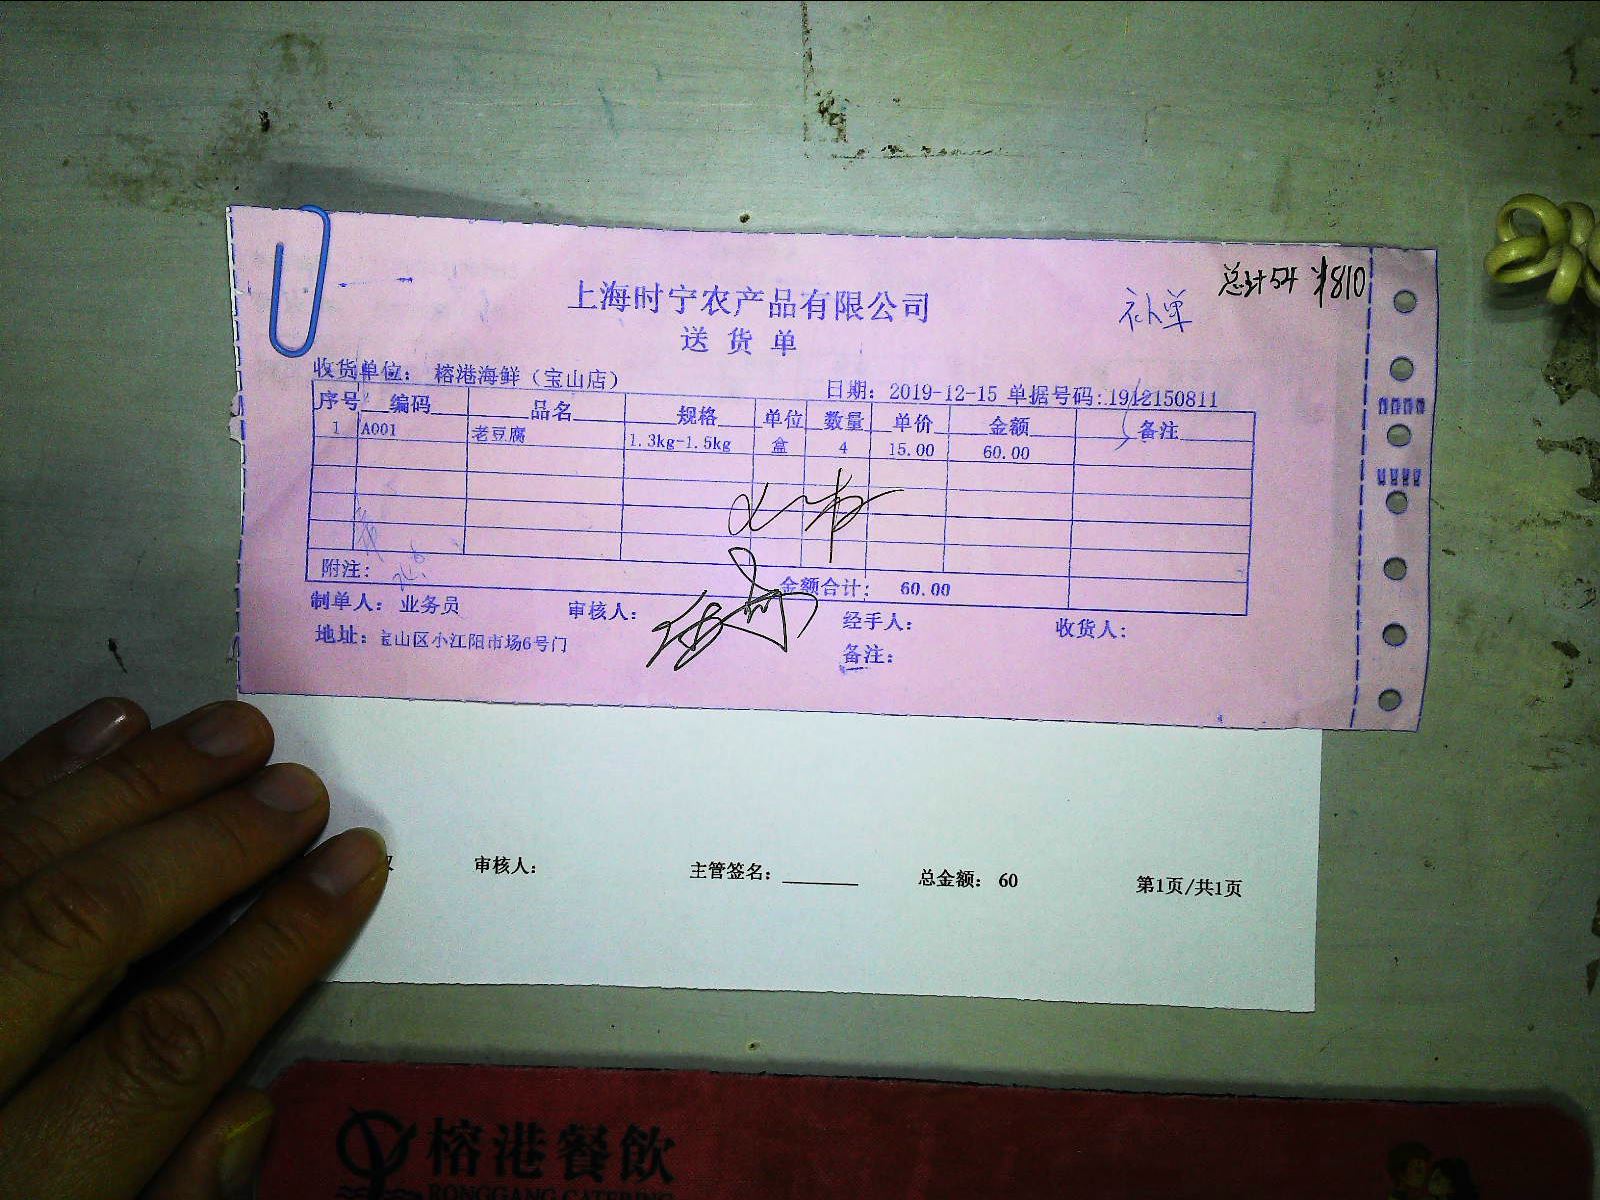 总计54 ¥810
补单
上海时宁农产品有限公司
送货单
收货单位： 榕港海鲜（宝山店）
日期： 2019-12-15 单据号码:1912150811
序号 编码 品名 规格 单位 数量 单价 金额 备注
1 A001 老豆腐 1.3kg-1.5kg 盒 4 15.00 60.00
附注：
金额合计： 60.00
制单人： 业务员 审核人： 经手人： 收货人：
地址：宝山区小江阳市场6号门
备注：
审核人： 主管签名： 总金额： 60 第1页/共1页
榕港餐飲
RONGGANG CATERING